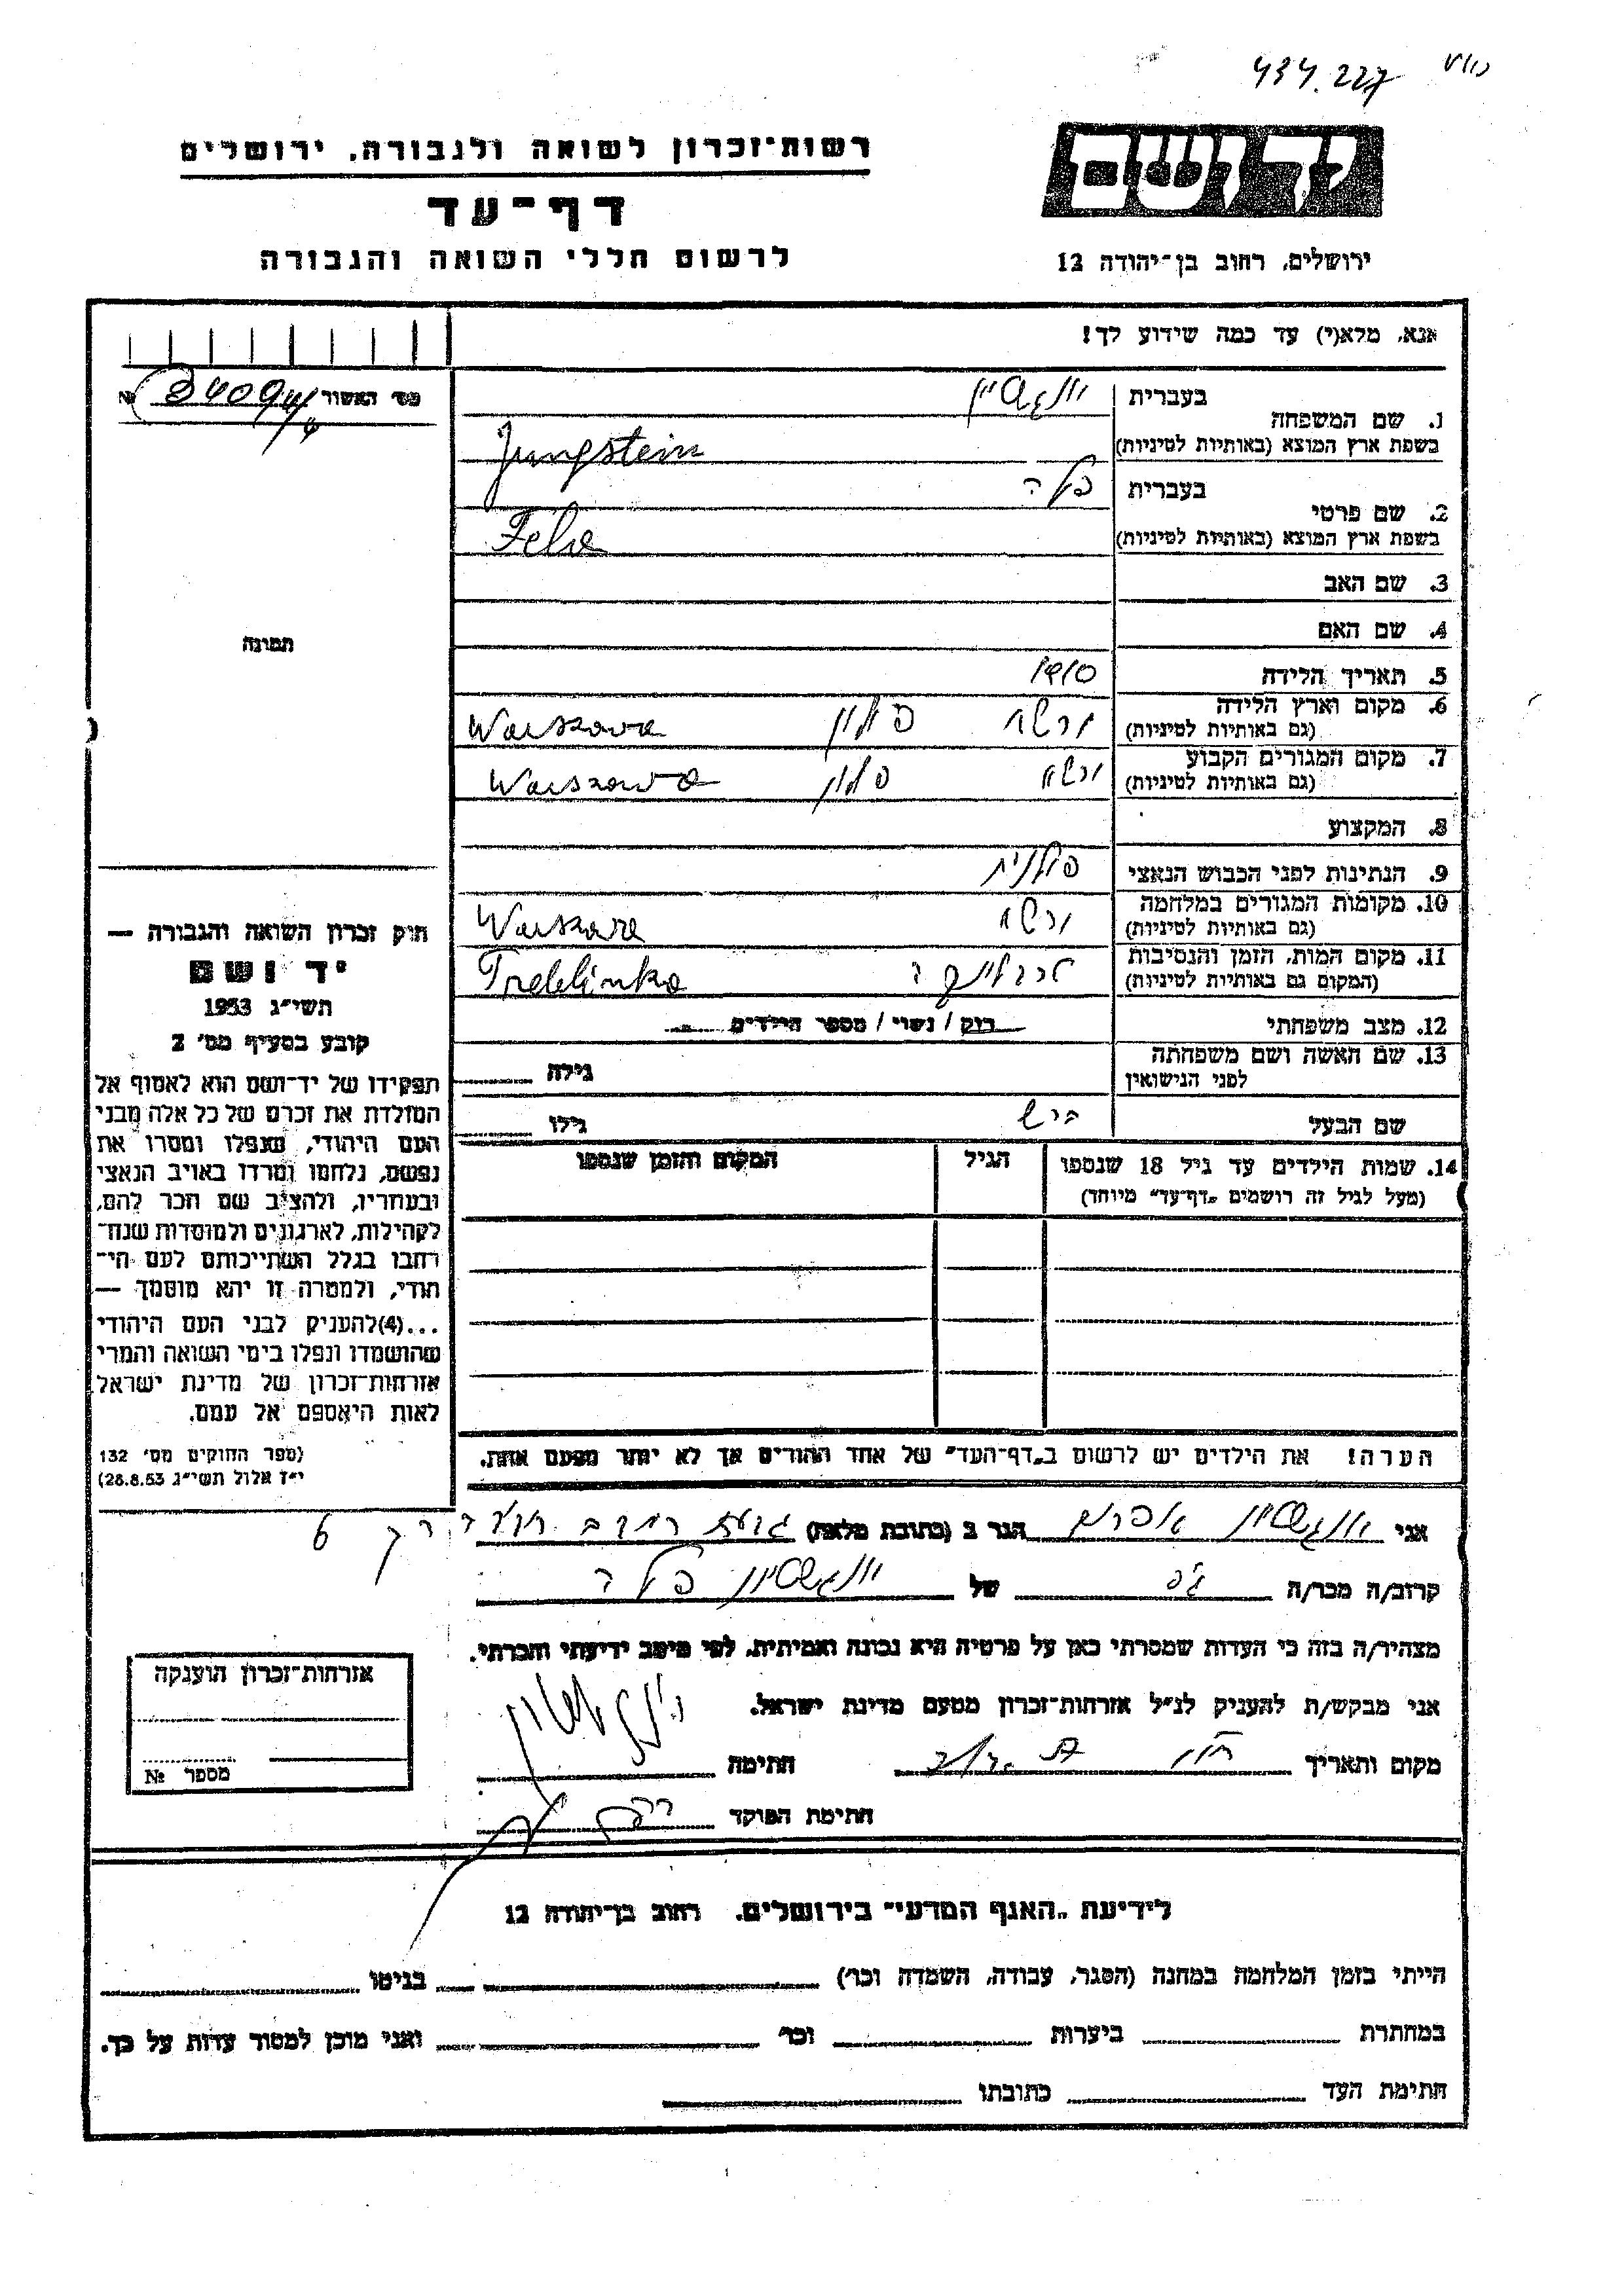 434.227
רשות־זכרון לשואה ולגבורה, ירושלים
דף־עד
לרשום חללי השואה והגבורה
יד ושם
ירושלים, רחוב בן־יהודה 12
אנא, מלא(י) עד כמה שידוע לך!
מס' האשור №
1. שם המשפחה בעברית יונגשטיין
בשפת ארץ המוצא (באותיות לטיניות) Jungstein
2. שם פרטי בעברית פלה
בשפת ארץ המוצא (באותיות לטיניות) Fela
3. שם האב
4. שם האם
תמונה
5. תאריך הלידה 1910
6. מקום וארץ הלידה ורשא פולין Warszawa
(גם באותיות לטיניות)
7. מקום המגורים הקבוע ורשא פולין Warszawa
(גם באותיות לטיניות)
8. המקצוע
9. הנתינות לפני הכבוש הנאצי פולנית
10. מקומות המגורים במלחמה ורשא Warszawa
(גם באותיות לטיניות)
11. מקום המות, הזמן והנסיבות טרבלינקה Treblinka
(המקום גם באותיות לטיניות)
12. מצב משפחתי רווק / נשוי / מספר הילדים
13. שם האשה ושם משפחתה גילה
לפני הנישואין
שם הבעל בירש גילו
14. שמות הילדים עד גיל 18 שנספו הגיל המקום והזמן שנספו
(מעל לגיל זה רושמים „דף־עד" מיוחד)
הערה! את הילדים יש לרשום ב„דף־העד" של אחד ההורים אך לא יותר מפעם אחת.
חוק זכרון השואה והגבורה —
יד ושם
תשי"ג 1953
קובע בסעיף מס' 2
תפקידו של יד־ושם הוא לאסוף אל
המולדת את זכרם של כל אלה מבני
העם היהודי, שנפלו ומסרו את
נפשם, נלחמו ומרדו באויב הנאצי
ובעוזריו, ולהציב שם וזכר להם,
לקהילות, לארגונים ולמוסדות שנח־
רבו בגלל השתייכותם לעם הי־
הודי, ולמטרה זו יהא מוסמך —
...(4) להעניק לבני העם היהודי
שהושמדו ונפלו בימי השואה והמרי
אזרחות־זכרון של מדינת ישראל
לאות היאספם אל עמם.
(ספר החוקים מס' 132
י"ז אלול תשי"ג 28.8.53)
אני יונגשטיין אפרים הגר ב (כתובת מלאה) גבעת 6
קרוב/ה מכר/ה גיס של יונגשטיין פלה
מצהיר/ה בזה כי העדות שמסרתי כאן על פרטיה היא נכונה ואמיתית, לפי מיטב ידיעתי והכרתי.
אני מבקש/ת להעניק לנ"ל אזרחות־זכרון מטעם מדינת ישראל.
מקום ותאריך חתימה
חתימת הפוקד
אזרחות־זכרון הוענקה
מספר №
לידיעת „האגף המדעי" בירושלים, רחוב בן־יהודה 12
הייתי בזמן המלחמה במחנה (הסגר, עבודה, השמדה וכו') בגיטו
במחתרת ביערות וכו' ואני מוכן למסור עדות על כך.
חתימת העד כתובתו